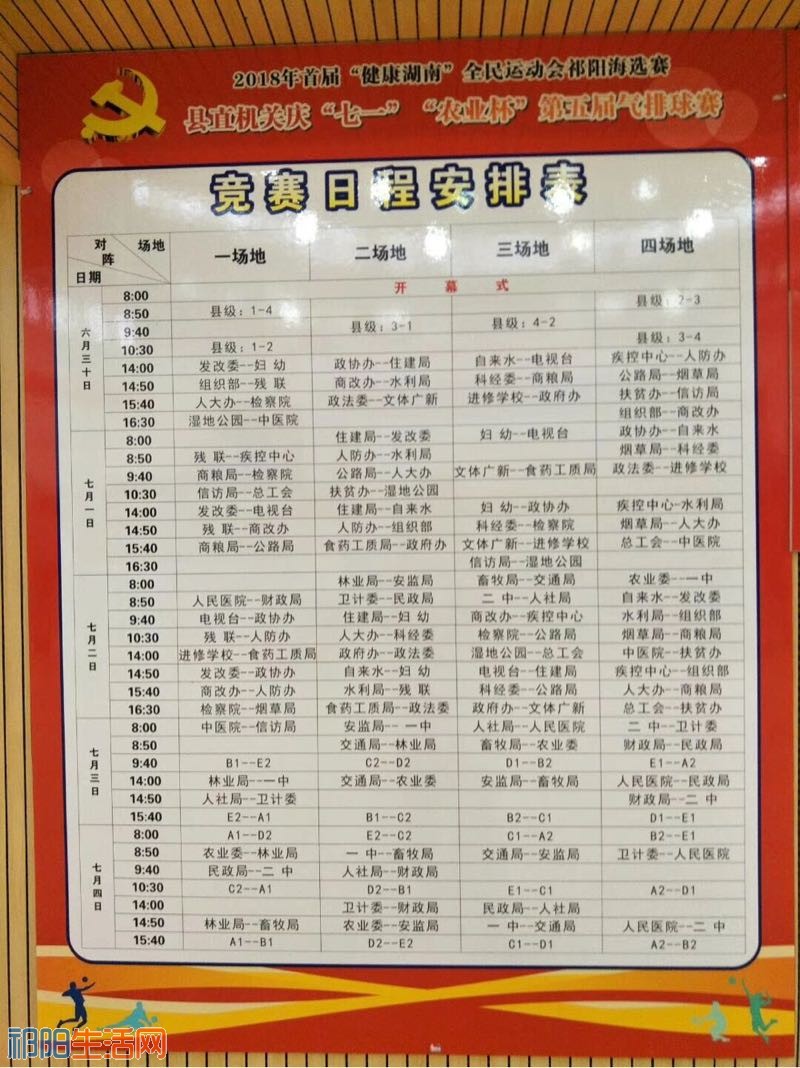 2018年首届“健康湖南”全民运动会祁阳海选赛
县直机关庆“七一”“农业杯”第五届气排球赛
竞赛日程安排表
对阵 场地 日期 一场地 二场地 三场地 四场地
六月三十日
8:00 开 幕 式
8:50 县级：1-4 县级：2-3
9:40 县级：3-1 县级：4-2
10:30 县级：1-2 县级：3-4
14:00 发改委--妇 幼 政协办--住建局 自来水--电视台 疾控中心--人防办
14:50 组织部--残 联 商改办--水利局 科经委--商粮局 公路局--烟草局
15:40 人大办--检察院 政法委--文体广新 进修学校--政府办 扶贫办--信访局
16:30 湿地公园--中医院 组织部--商改办
七月一日
8:00 住建局--发改委 妇 幼--电视台 政协办--自来水
8:50 残 联--疾控中心 人防办--水利局 烟草局--科经委
9:40 商粮局--检察院 公路局--人大办 文体广新--食药工质局 政法委--进修学校
10:30 信访局--总工会 扶贫办--湿地公园
14:00 发改委--电视台 住建局--自来水 妇 幼--政协办 疾控中心-水利局
14:50 残 联--商改办 人防办--组织部 科经委--检察院 烟草局--人大办
15:40 商粮局--公路局 食药工质局--政府办 文体广新--进修学校 总工会--中医院
16:30 信访局--湿地公园
七月二日
8:00 林业局--安监局 畜牧局--交通局 农业委--一中
8:50 人民医院--财政局 卫计委--民政局 二 中--人社局 自来水--发改委
9:40 电视台--政协办 住建局--妇 幼 商改办--疾控中心 水利局--组织部
10:30 残 联--人防办 人大办--科经委 检察院--公路局 烟草局--商粮局
14:00 进修学校--食药工质局 政府办--政法委 湿地公园--总工会 中医院--扶贫办
14:50 发改委--政协办 自来水--妇 幼 电视台--住建局 疾控中心--组织部
15:40 商改办--人防办 水利局--残 联 科经委--公路局 人大办--商粮局
16:30 检察院--烟草局 食药工质局--政法委 政府办--文体广新 总工会--扶贫办
七月三日
8:00 中医院--信访局 安监局-- 一中 人社局--人民医院 二 中--卫计委
8:50 交通局--林业局 畜牧局--农业委 财政局--民政局
9:40 B1--E2 C2--D2 D1--B2 E1--A2
14:00 林业局--一中 交通局--农业委 安监局--畜牧局 人民医院--民政局
14:50 人社局--卫计委 财政局--二 中
15:40 E2--A1 B1--C2 B2--C1 D1--E1
七月四日
8:00 A1--D2 E2--C2 C1--A2 B2--E1
8:50 农业委--林业局 一 中--畜牧局 交通局--安监局 卫计委--人民医院
9:40 民政局--二 中 人社局--财政局
10:30 C2--A1 D2--B1 E1--C1 A2--D1
14:00 卫计委--财政局 民政局--人社局
14:50 林业局--畜牧局 农业委--安监局 一 中--交通局 人民医院--二 中
15:40 A1--B1 D2--E2 C1--D1 A2--B2
祁阳生活网